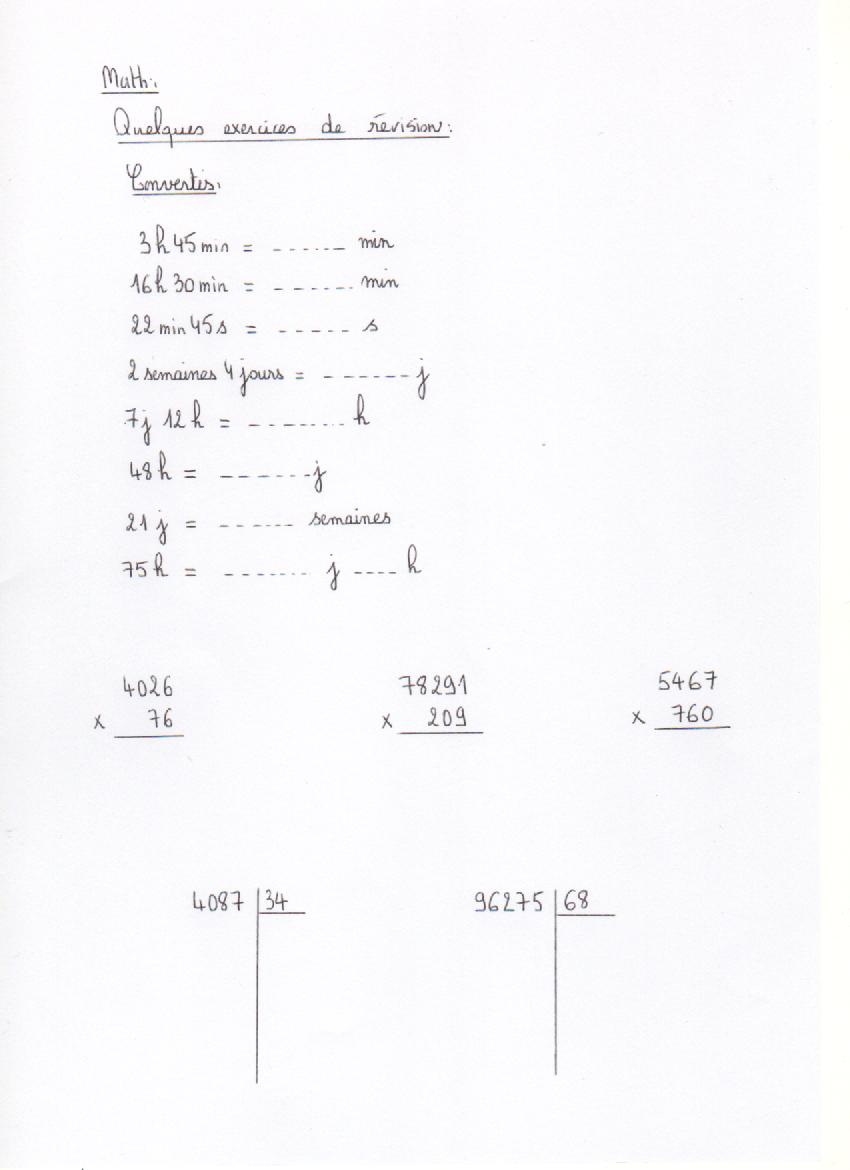 Math:
Quelques exercices de révision:
Convertis:
3h 45 min = ------ min
16h 30 min = ------ min
22 min 45 s = ----- s
2 semaines 4 jours = ------ j
7j 12 h = ------- h
48 h = ------ j
21 j = ------ semaines
75 h = ------- j ---- h
4026 78291 5467
x 76 x 209 x 760
4087 34 96275 68